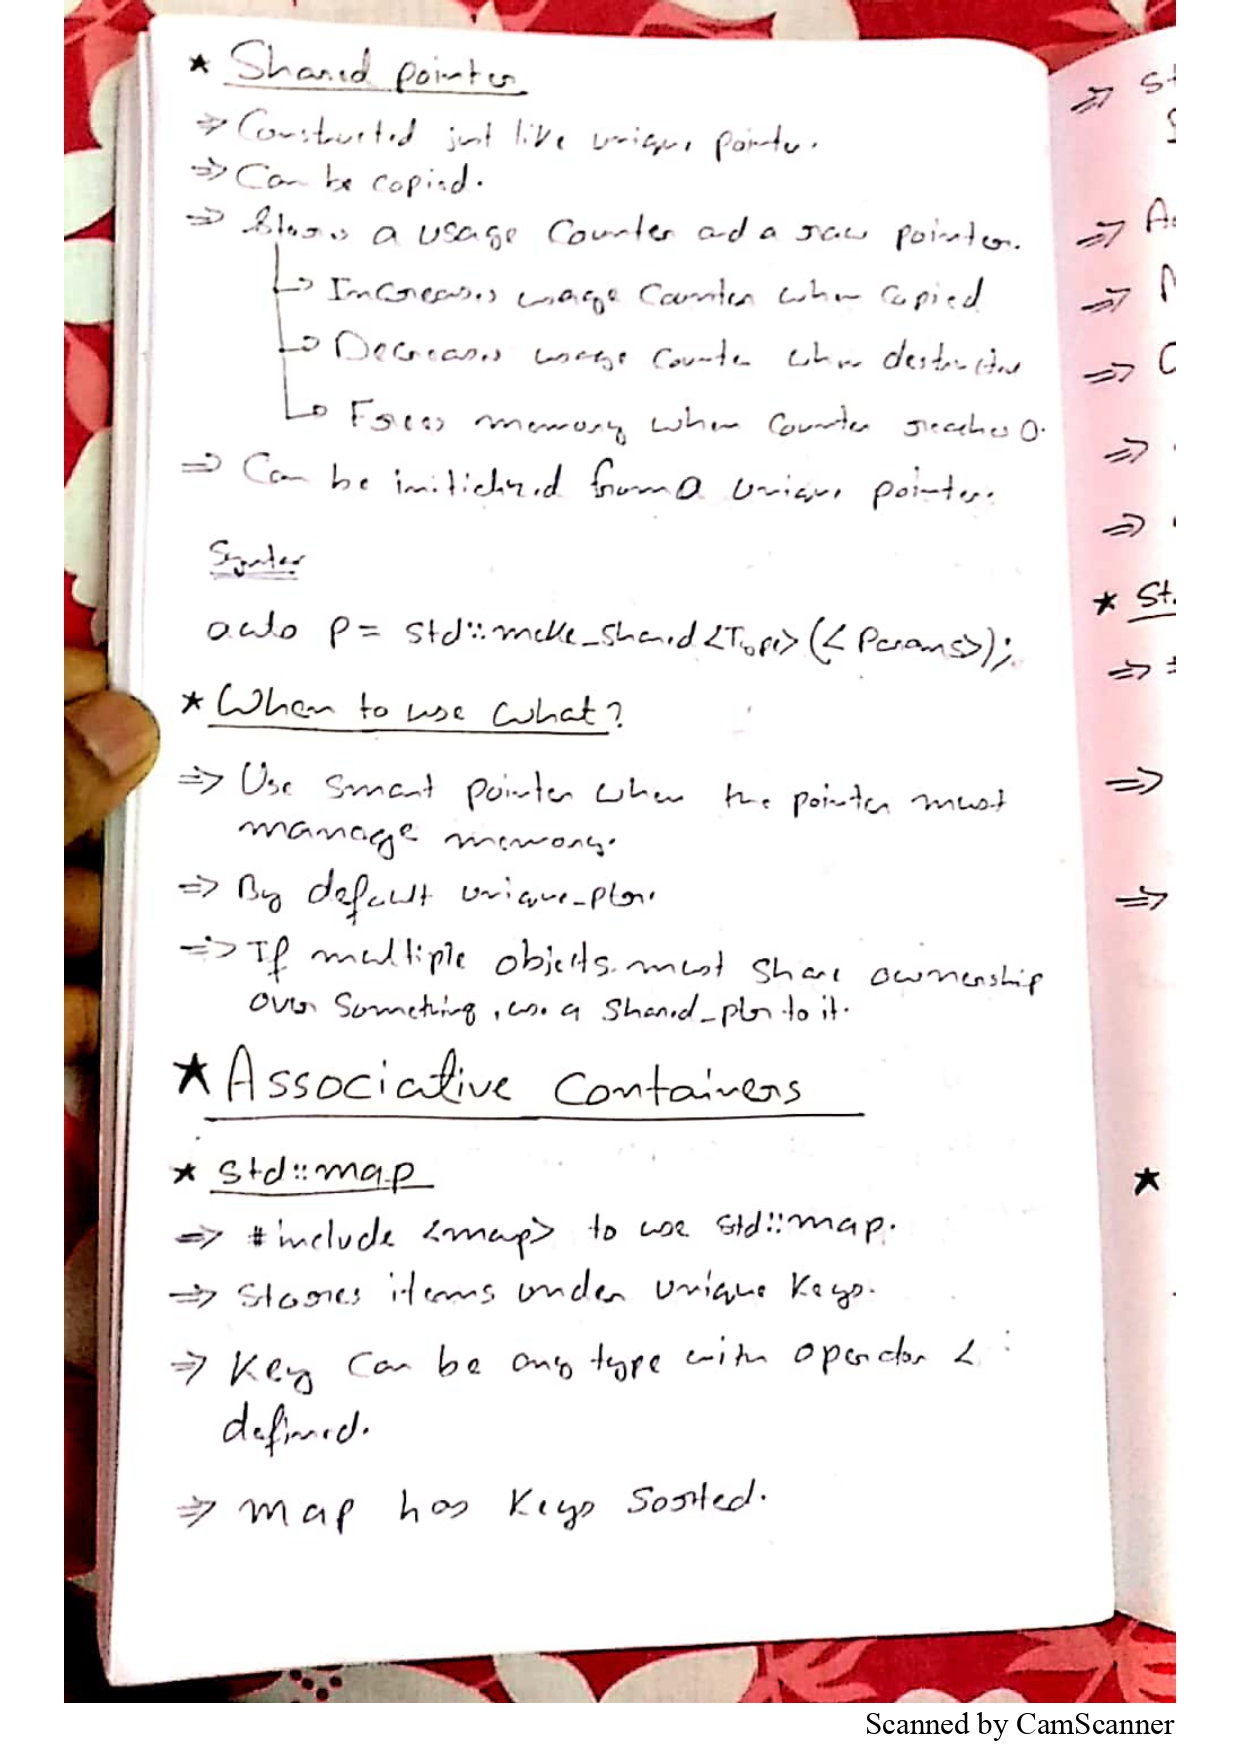 ★ Shared pointer
⇒ Constructed just like unique pointer.
⇒ Can be copied.
⇒ Stores a usage Counter and a raw pointer.
→ Increases usage Counter when copied
→ Decreases usage counter when destructed
→ Frees memory when Counter reaches 0.
⇒ Can be initialized from a unique pointer.
Syntax
auto p = std::make_shared<Type>(<Params>);
★ When to use what?
⇒ Use smart pointer when the pointer must
manage memory.
⇒ By default unique_ptr.
⇒ If multiple objects must share ownership
over something, use a shared_ptr to it.
★ Associative Containers
★ std::map
⇒ #include <map> to use std::map.
⇒ Stores items under unique keys.
⇒ Key can be any type with operator <
defined.
⇒ map has keys sorted.
⇒ St
⇒
⇒
⇒
⇒
⇒
★ St
⇒
⇒
⇒
★
Scanned by CamScanner